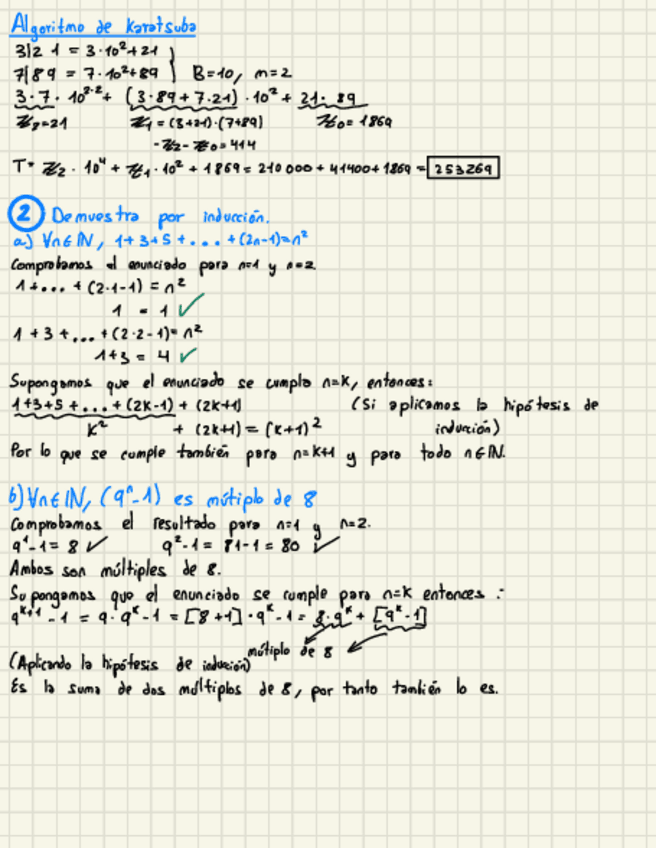 Algoritmo de Karatsuba
3|21 = 3·10²+21
7|89 = 7·10²+89 } B=10, m=2
3·7·10²·² + (3·89+7·21)·10² + 21·89
Z₂=21 Z₁=(3+21)·(7+89) Z₀=1869
-Z₂-Z₀=414
T= Z₂·10⁴+Z₁·10²+1869=210000+41400+1869=253269
2 Demuestra por inducción.
a) ∀n∈ℕ, 1+3+5+...+(2n-1)=n²
Comprobamos el enunciado para n=1 y n=2
1+...+(2·1-1)=n²
1 = 1 ✓
1+3+...+(2·2-1)=n²
1+3 = 4 ✓
Supongamos que el enunciado se cumpla n=k, entonces:
1+3+5+...+(2k-1)+(2k+1) (Si aplicamos la hipótesis de
k² + (2k+1)=(k+1)² inducción)
Por lo que se cumple también para n=k+1 y para todo n∈ℕ.
b) ∀n∈ℕ, (9ⁿ-1) es mútiplo de 8
Comprobamos el resultado para n=1 y n=2.
9¹-1=8 ✓ 9²-1=81-1=80 ✓
Ambos son múltiples de 8.
Supongamos que el enunciado se cumple para n=k entonces:
9ᵏ⁺¹-1=9·9ᵏ-1=[8+1]·9ᵏ-1=8·9ᵏ+[9ᵏ-1]
mútiplo de 8
(Aplicando la hipótesis de inducción)
Es la suma de dos múltiplos de 8, por tanto también lo es.